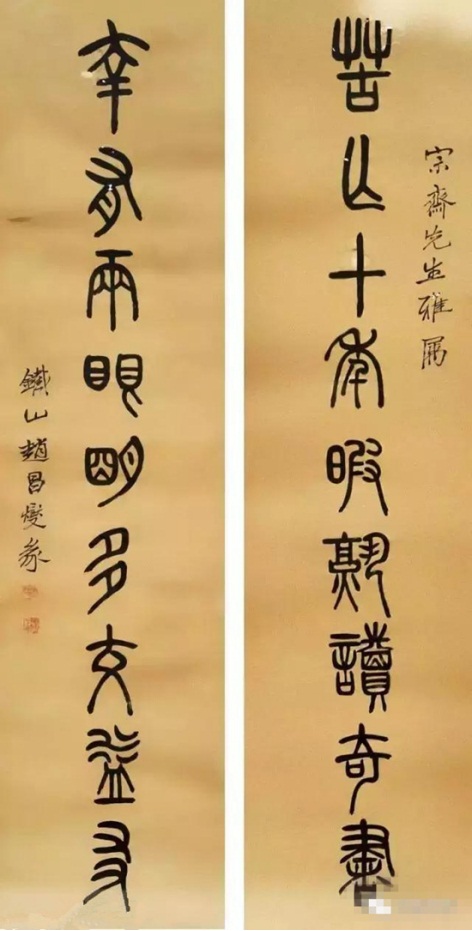 宗齋先生雅属
苦亡十年暇熟讀奇書
幸有兩眼明多交益友
鐵山趙昌燮篆